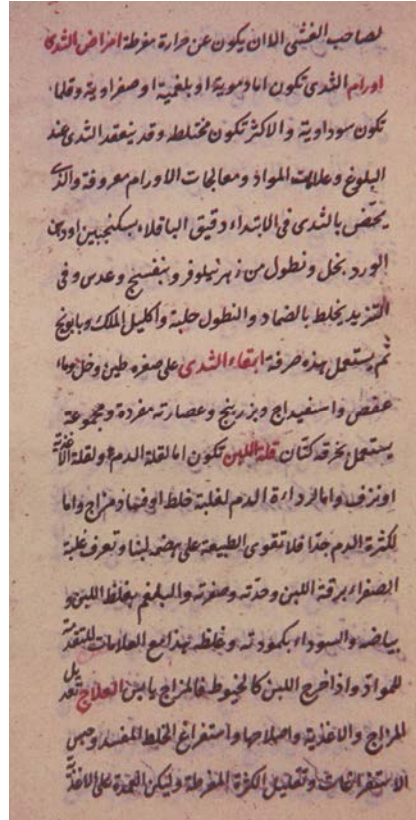 لصاحب الغشى الا ان يكون عن حرارة مفرطة امراض الثدى
اورام الثدى تكون اما دموية او بلغمية او صفراوية وقلما
تكون سوداوية والاكثر تكون مختلط وقد ينعقد الثدى عند
البلوغ وعلامات المواد ومعالجات الاورام معروفة والذى
يختص بالثدى فى الابتداء دقيق الباقلاء بسكنجبين او دهن
الورد بخل ونطول من زهر نيلوفر وبنفسج وعدس وفى
التزيد يخلط بالضماد والنطول حلبة واكليل الملك وبابونج
ثم يستعمل بهذه صرفة ابقاء الثدى على صغره طين وخل وماء
عفص واسفيداج وبزر بنج وعصارته مفردة ومجموعة
يستعمل بخرقة كتان قلة اللبن تكون اما لقلة الدم ولقلة الاغذية
او نزف واما لرداءة الدم لغلبة خلط او فساد مزاج واما
لكثرة الدم جدا فلا تقوى الطبيعة على هضمه لبنا وتعرف غلبة
الصفراء برقة اللبن وحدته وصفرته والبلغم بغلظ اللبن و
بياضه والسوداء بكمودته وغلظه بهذا مع العلامات المتقدمة
للمواد واذا خرج اللبن كالخيوط فالمزاج يابس العلاج تعديل
المزاج والاغذية واصلاحها واستفراغ الخلط المفسد وحبس
الاستفراغات وتقليل الكثرة المفرطة وليكن العمدة على الاغذية